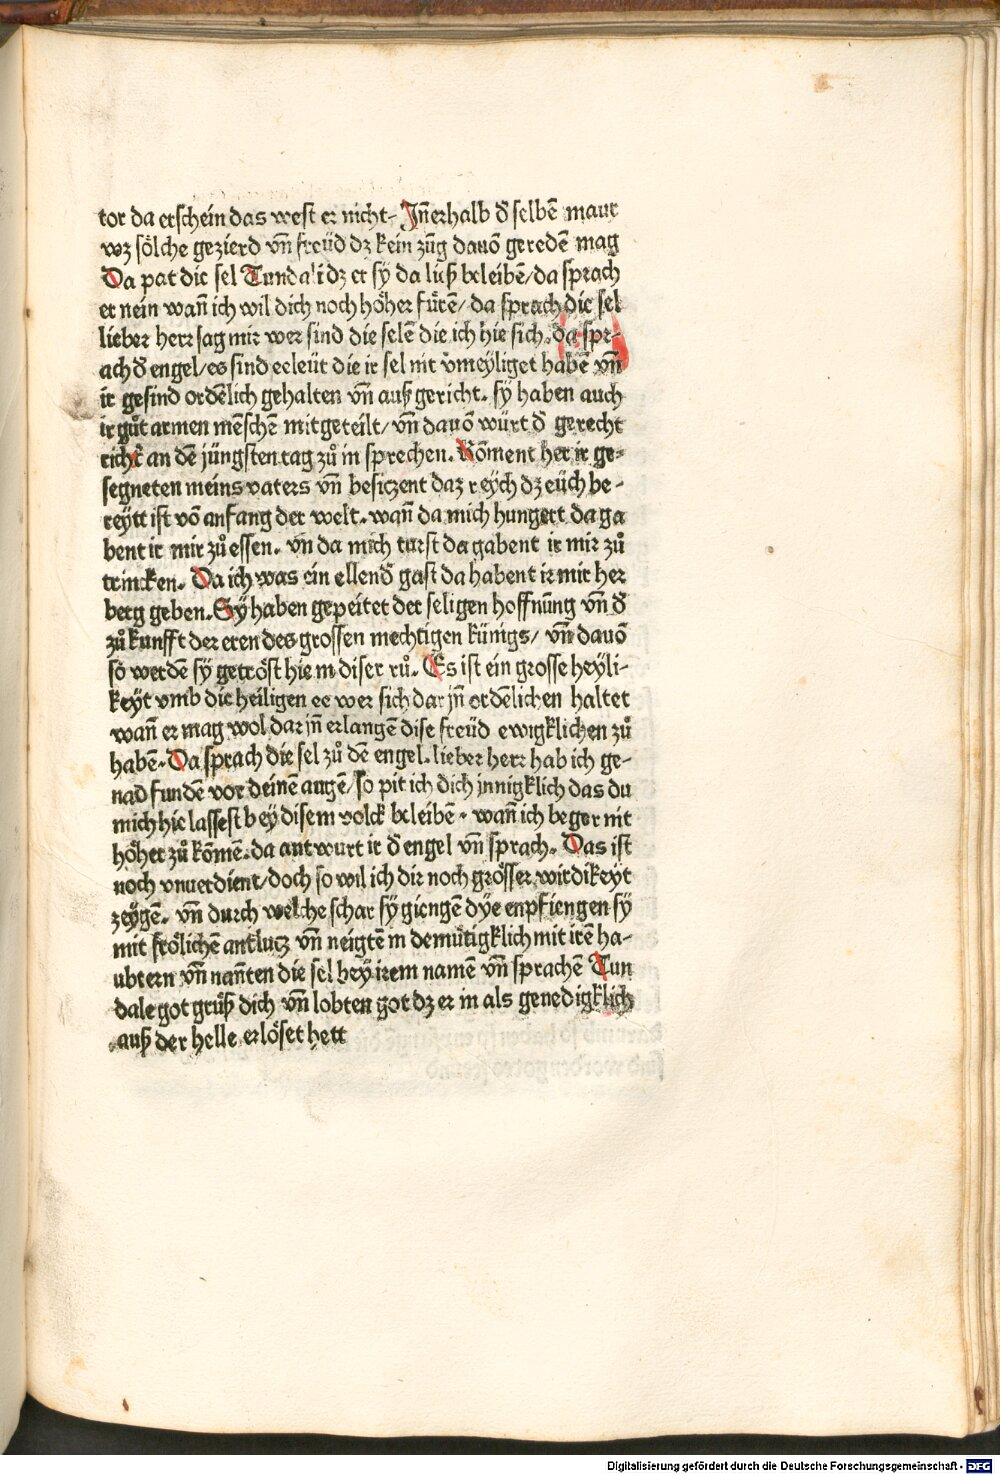 tor da erschein das west er nicht. Jn̄erhalb d̕ selbē maur
wz sölche gezierd vn̄ freüd dz kein zūg dauō geredē mag
Da pat die sel Tundali dz er sÿ da ließ beleibē/da sprach
er nein wan̄ ich wil dich noch höher fürē/ da sprach die sel
lieber herr sag mir wer sind die selē die ich hie sich. da spr-
ach d̕ engel/es sind eeleüt die ir sel nit v̄meÿliget habē vn̄
ir gesind ordēlich gehalten vn̄ auß gericht. sÿ haben auch
ir gůt armen mēschē mitgeteilt/ vn̄ dauō würt d̕ gerecht
richt̕ an dē jüngsten tag zů in sprechen. Kōment her ir ge-
segneten meins vaters vn̄ besiczent daz reÿch dz eüch be-
reÿtt ist vō anfang der welt. wan̄ da mich hungert da ga
bent ir mir zů essen. vn̄ da mich turst da gabent ir mir zů
trincken. Da ich was ein ellend̕ gast da habent ir mir her
berg geben. Sÿ haben gepeitet der seligen hoffnūng vn̄ d̕
zů kunfft der eren des grossen mechtigen künigs/ vn̄ dauō
so werdē sÿ getröst hie in diser rů. Es ist ein grosse heÿli-
keyt vmb die heiligen ee wer sich dar jn̄ ordēlichen haltet
wan̄ er mag wol dar jn̄ erlangē dise freüd ewigklichen zů
habē. Da sprach die sel zů dē engel. lieber herr hab ich ge-
nad fundē vor deinē augē/so pit ich dich jnnigklich das du
mich hie lassest beÿ disem volck beleibē. wan̄ ich beger nit
höher zů kōmē. da antwurt ir d̕ engel vn̄ sprach. Das ist
noch vnuerdient/doch so wil ich dir noch grösser wirdikeÿt
zeÿgē. vn̄ durch welche schar sÿ giengē dÿe enpfiengen sÿ
mit frölichē antlucz vn̄ neigtē in demütigklich mit irē ha-
ubtern vn̄ nan̄ten die sel beÿ irem namē vn̄ sprachē Tun
dale got grüß dich vn̄ lobten got dz er in als genedigklich
auß der helle erlöset hett
Digitalisierung gefördert durch die Deutsche Forschungsgemeinschaft - DFG